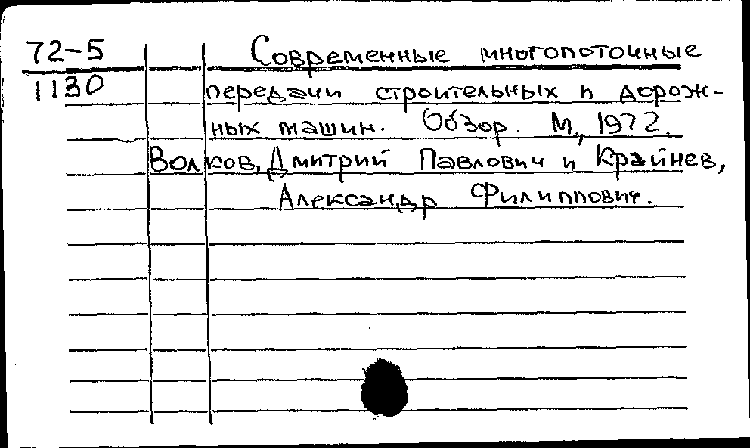 72-5 Современные многопоточные
1130 передачи строительных и дорож-
ных машин. Обзор. М., 1972.
Волков, Дмитрий Павлович и Крайнев,
Александр Филиппович.